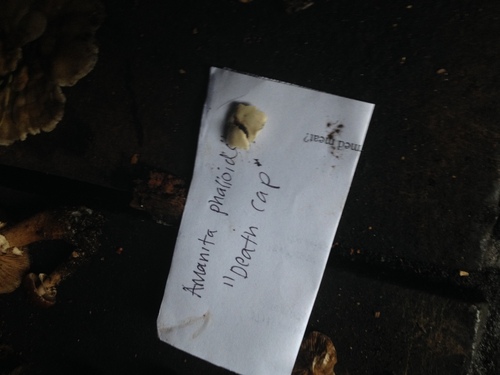 Amanita phalloid
"Death cap"
med meat?